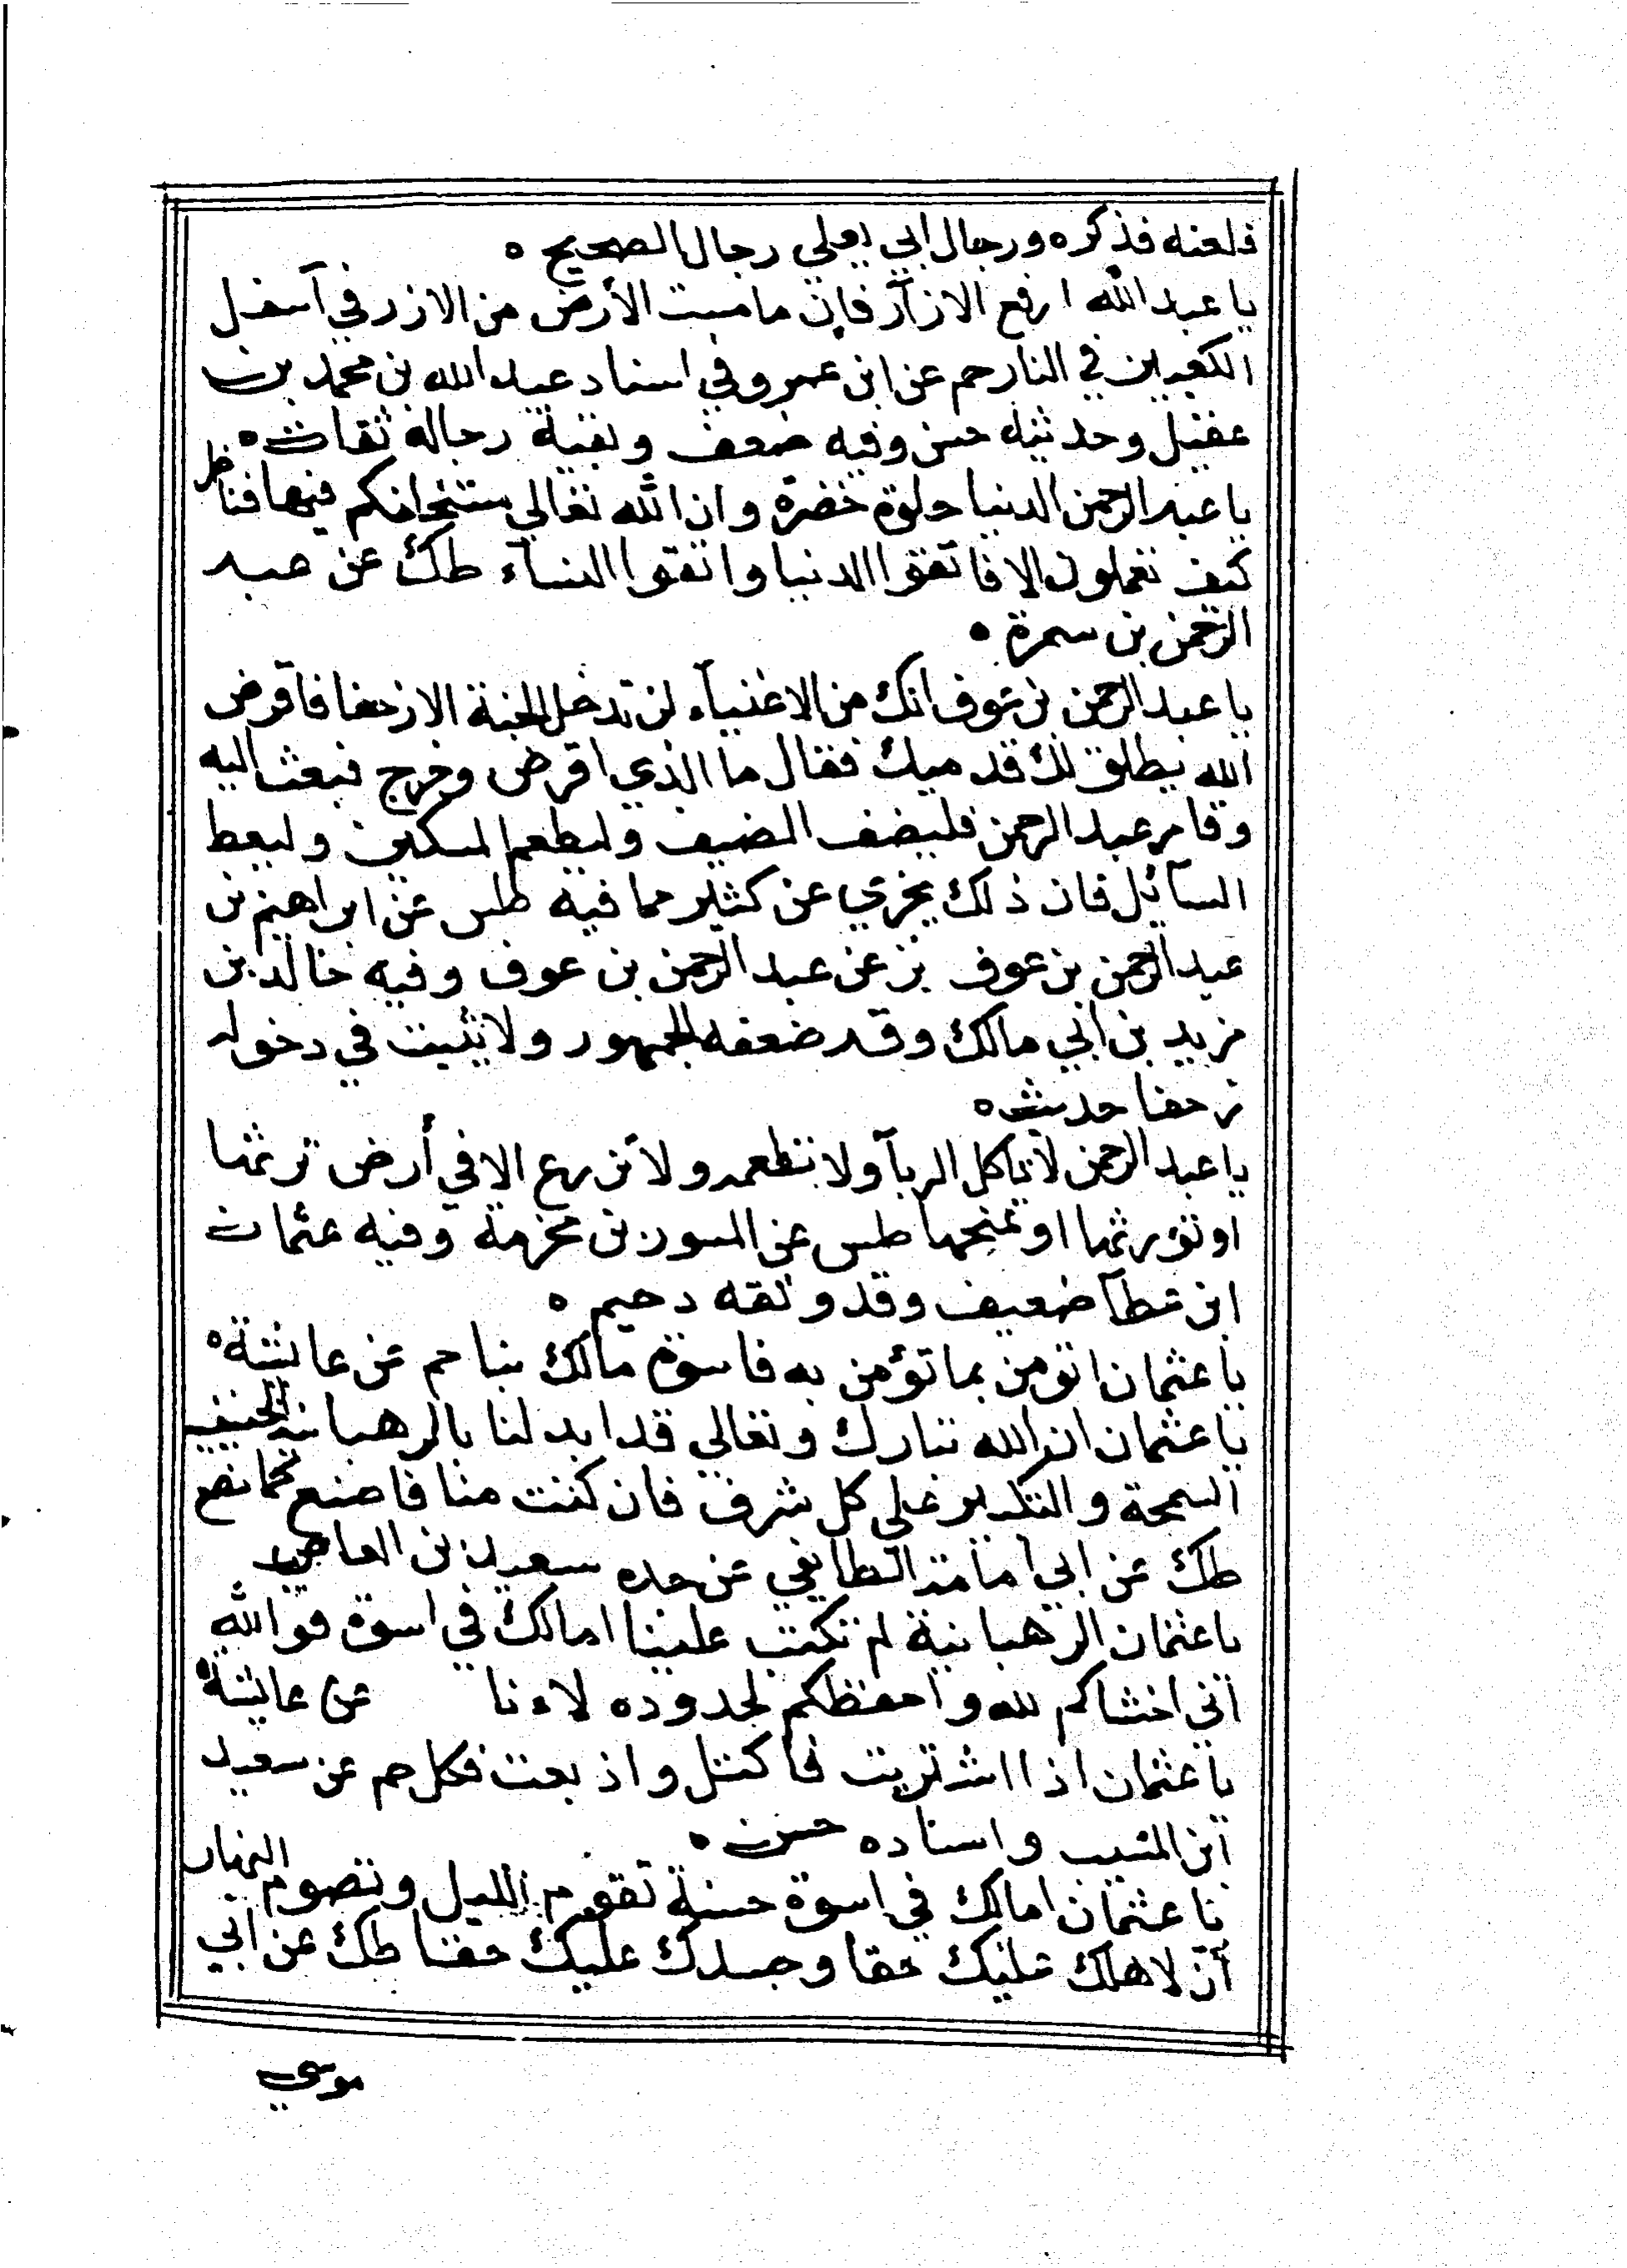 فلعنه فذكره ورجال ابي يعلي رجال الصحيح ه
يا عبد الله ارفع الازار فان ما مست الأرض من الازر في آسفل
الكعبين في النار حم عن ابن عمر وفي اسناد عبد الله بن محمد بن
عقيل وحديثه حسن وفيه ضعف وبقية رجاله ثقات ه
يا عبد الرحمن الدنيا حلوة خضرة وان الله تعالي مستخلفكم فيها فناظر
كيف تعملون الا فاتقوا الدنيا واتقوا النساء طك عن عبد
الرحمن بن سمرة ه
يا عبد الرحمن بن عوف انك من الاغنياء لن تدخل الجنة الا زحفا فاقرض
الله يطلق لك قدميك فقال ما الذي اقرض وخرج فبعث اليه
وقا مر عبد الرحمن فليضف الضيف وليطعم المسكين وليعط
السآئل فان ذلك يجزي عن كثير مما فيه طس عن ابراهيم بن
عبد الرحمن بن عوف بز عن عبد الرحمن بن عوف وفيه خالد بن
يزيد بن ابي مالك وقد ضعفه الجمهور ولا يثبت في دخوله
زحفا حديث ه
يا عبد الرحمن لا تأكل الربآ ولا تطعمه ولا تزرع الا في أرض ترثها
او تؤرثها او تمنحها طس عن المسور بن مخرمة وفيه عثمان
ابن عطآ ضعيف وقد وثقه دحيم ه
يا عثمان اتؤمن بما تؤمن به فاسوة مالك بنا حم عن عايشة ه
يا عثمان ان الله تبارك وتعالي قد ابدلنا بالرهبانية الحنيفية
السمحة والتكبير علي كل شرف فان كنت منا فاصنع كما نصنع
طك عن ابي امامة الطايفي عن جده سعيد بن العاصي
يا عثمان الرهبانية لم تكتب علينا امالك في اسوة فو الله
اني اخشاكم لله واحفظكم لحدوده لاءنا عن عايشة ه
يا عثمان اذا اشتريت فاكتل واذ بعت فكل حم عن سعيد
ابن المسيب واسناده حسن ه
يا عثمان امالك في اسوة حسنة تقوم الليل وتصوم النهار
أن لاهلك عليك حقا وجسدك عليك حقا طك عن ابي
موسي